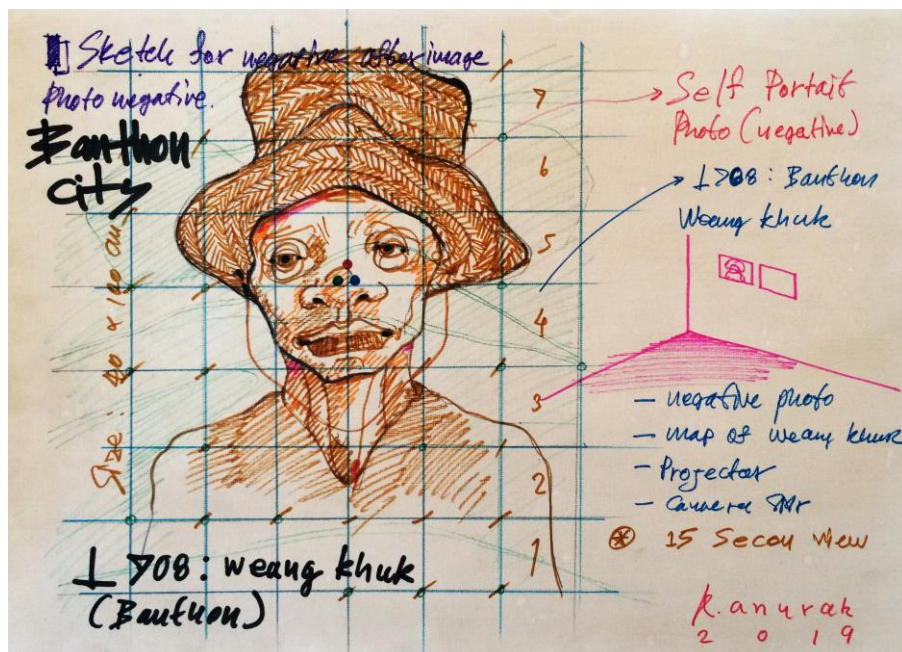 Sketch for negative afterimage
Photo negative.
Banthon
City
Size : 40 x 120 cm.
7
6
5
4
3
2
1
Self Portait
Photo (negative)
⊥ >08 : Banthon
Weang khuk
— negative photo
— map of weang khuk
— Projector
— Camera
15 Secon view
⊥ >08 : weang khuk
(Banthon)
R. anurak
2019